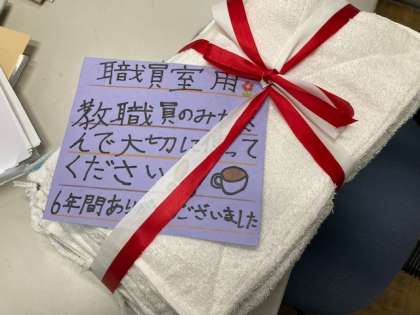 職員室用
教職員のみな
んで大切に って
ください
6年間あり ございました